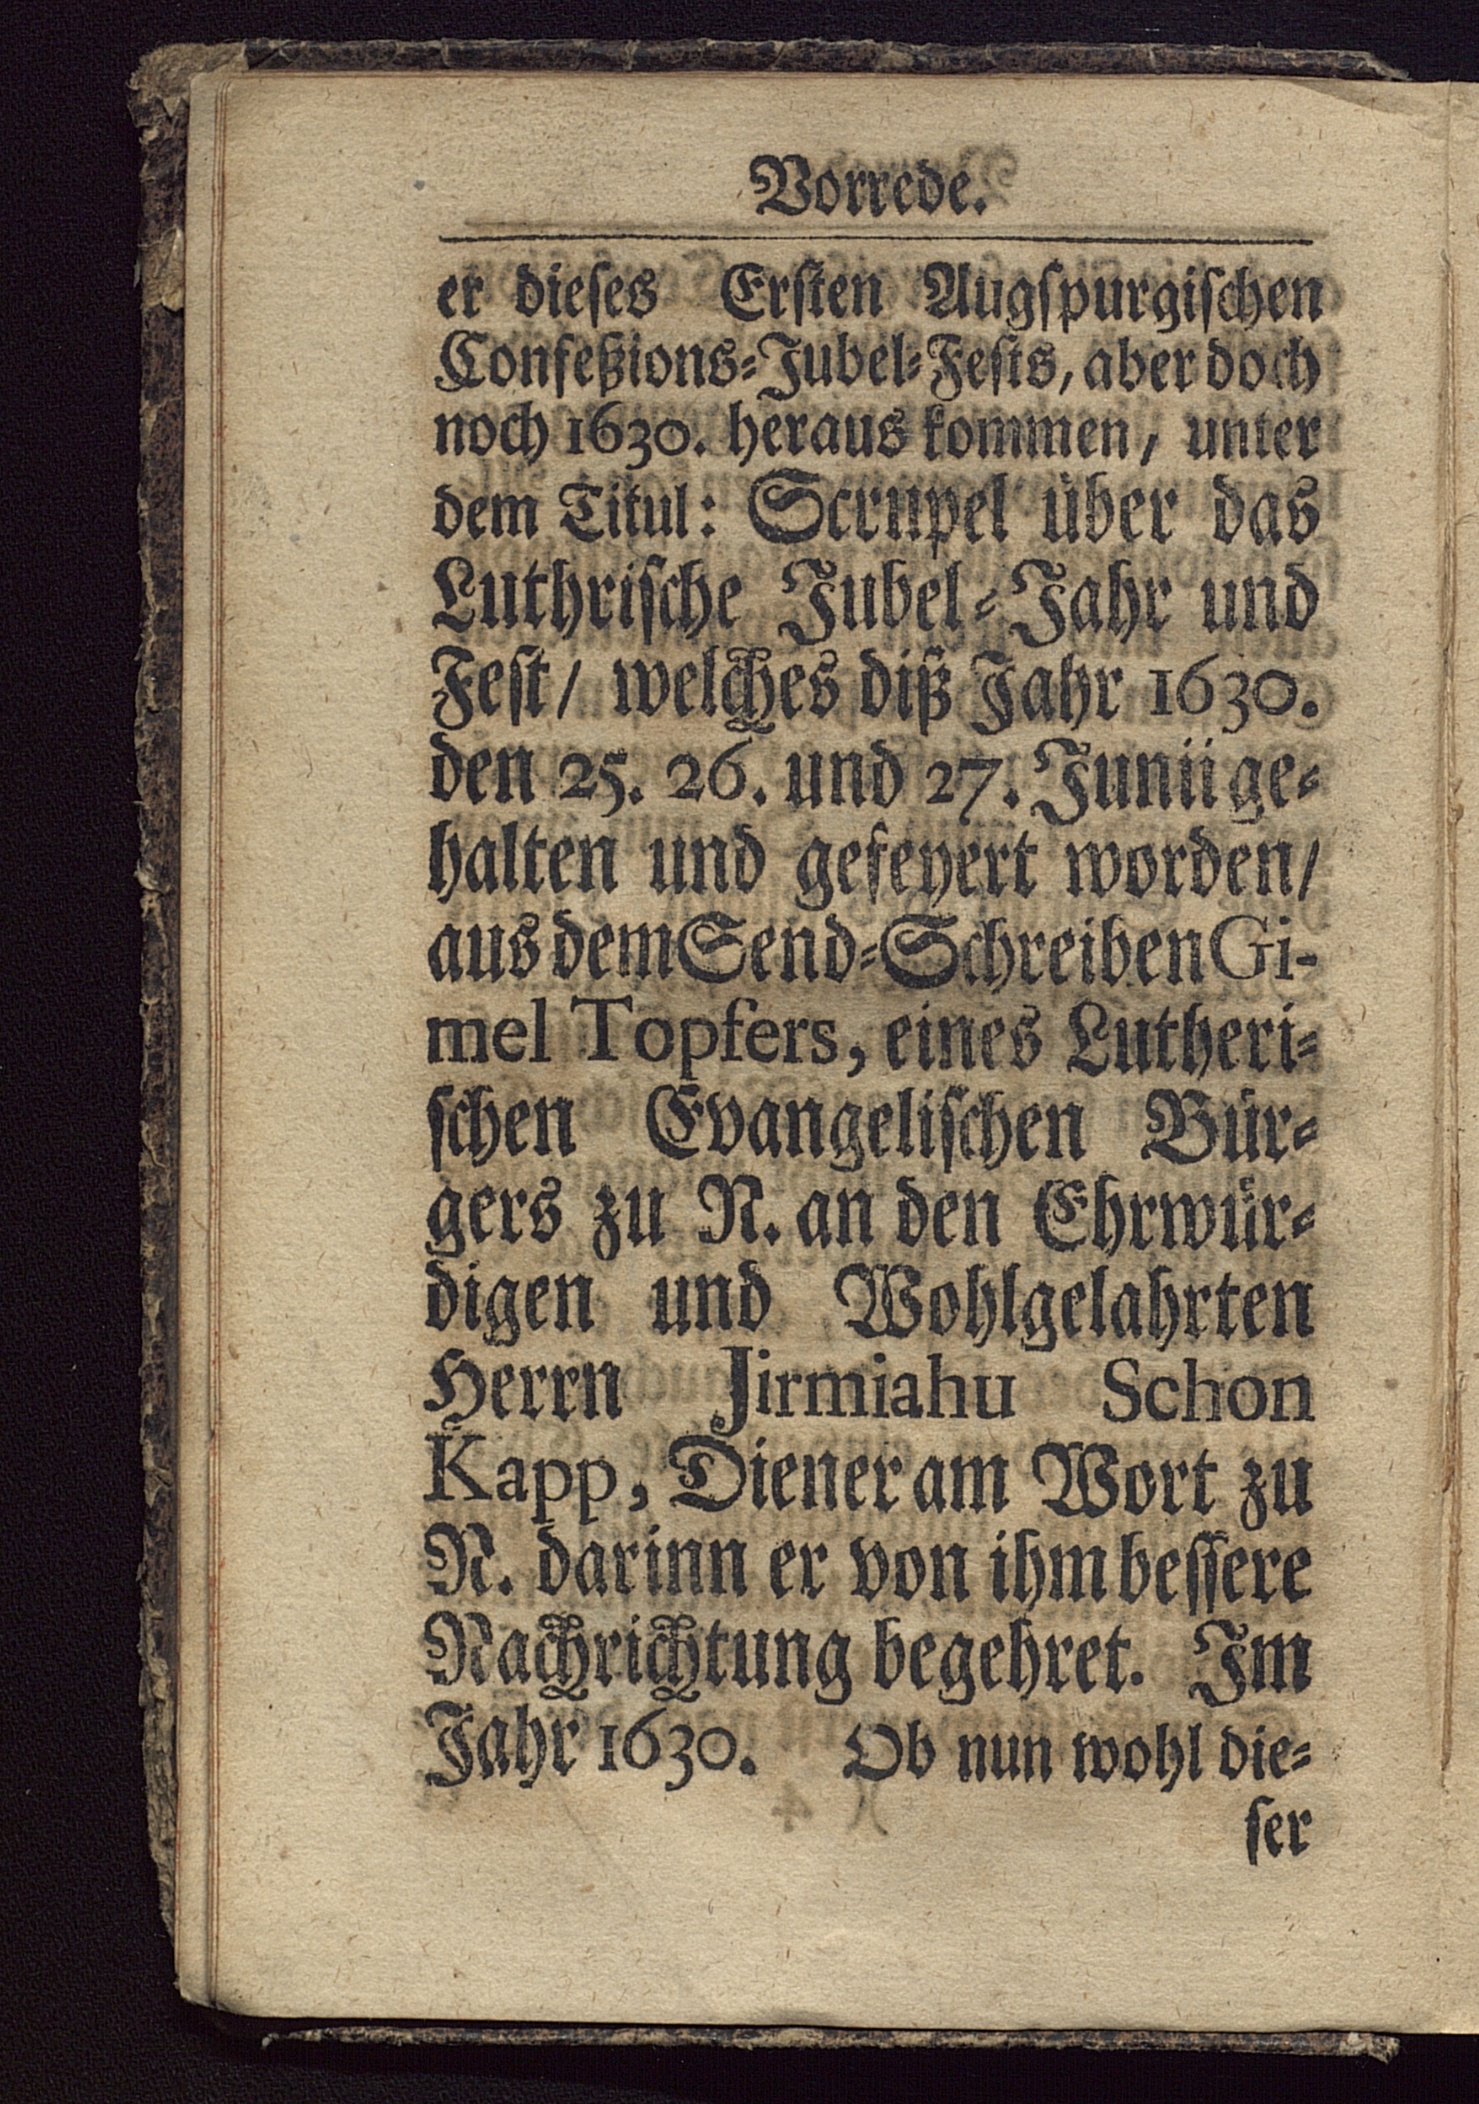 Vorrede.
er dieses Ersten Augspurgischen
Confeßions-Jubel-Fests, aber doch
noch 1630. heraus kommen, unter
dem Titul: Scrupel über das
Luthrische Jubel-Jahr und
Fest/ welches diß Jahr 1630.
den 25. 26. und 27. Junii ge-
halten und gefeyert worden/
aus dem Send-Schreiben Gi-
mel Topfers, eines Lutheri-
schen Evangelischen Bür-
gers zu N. an den Ehrwür-
digen und Wohlgelahrten
Herrn Jirmiahu Schon
Kapp, Diener am Wort zu
N. darinn er von ihm bessere
Nachrichtung begehret. Im
Jahr 1630. Ob nun wohl die-
ser